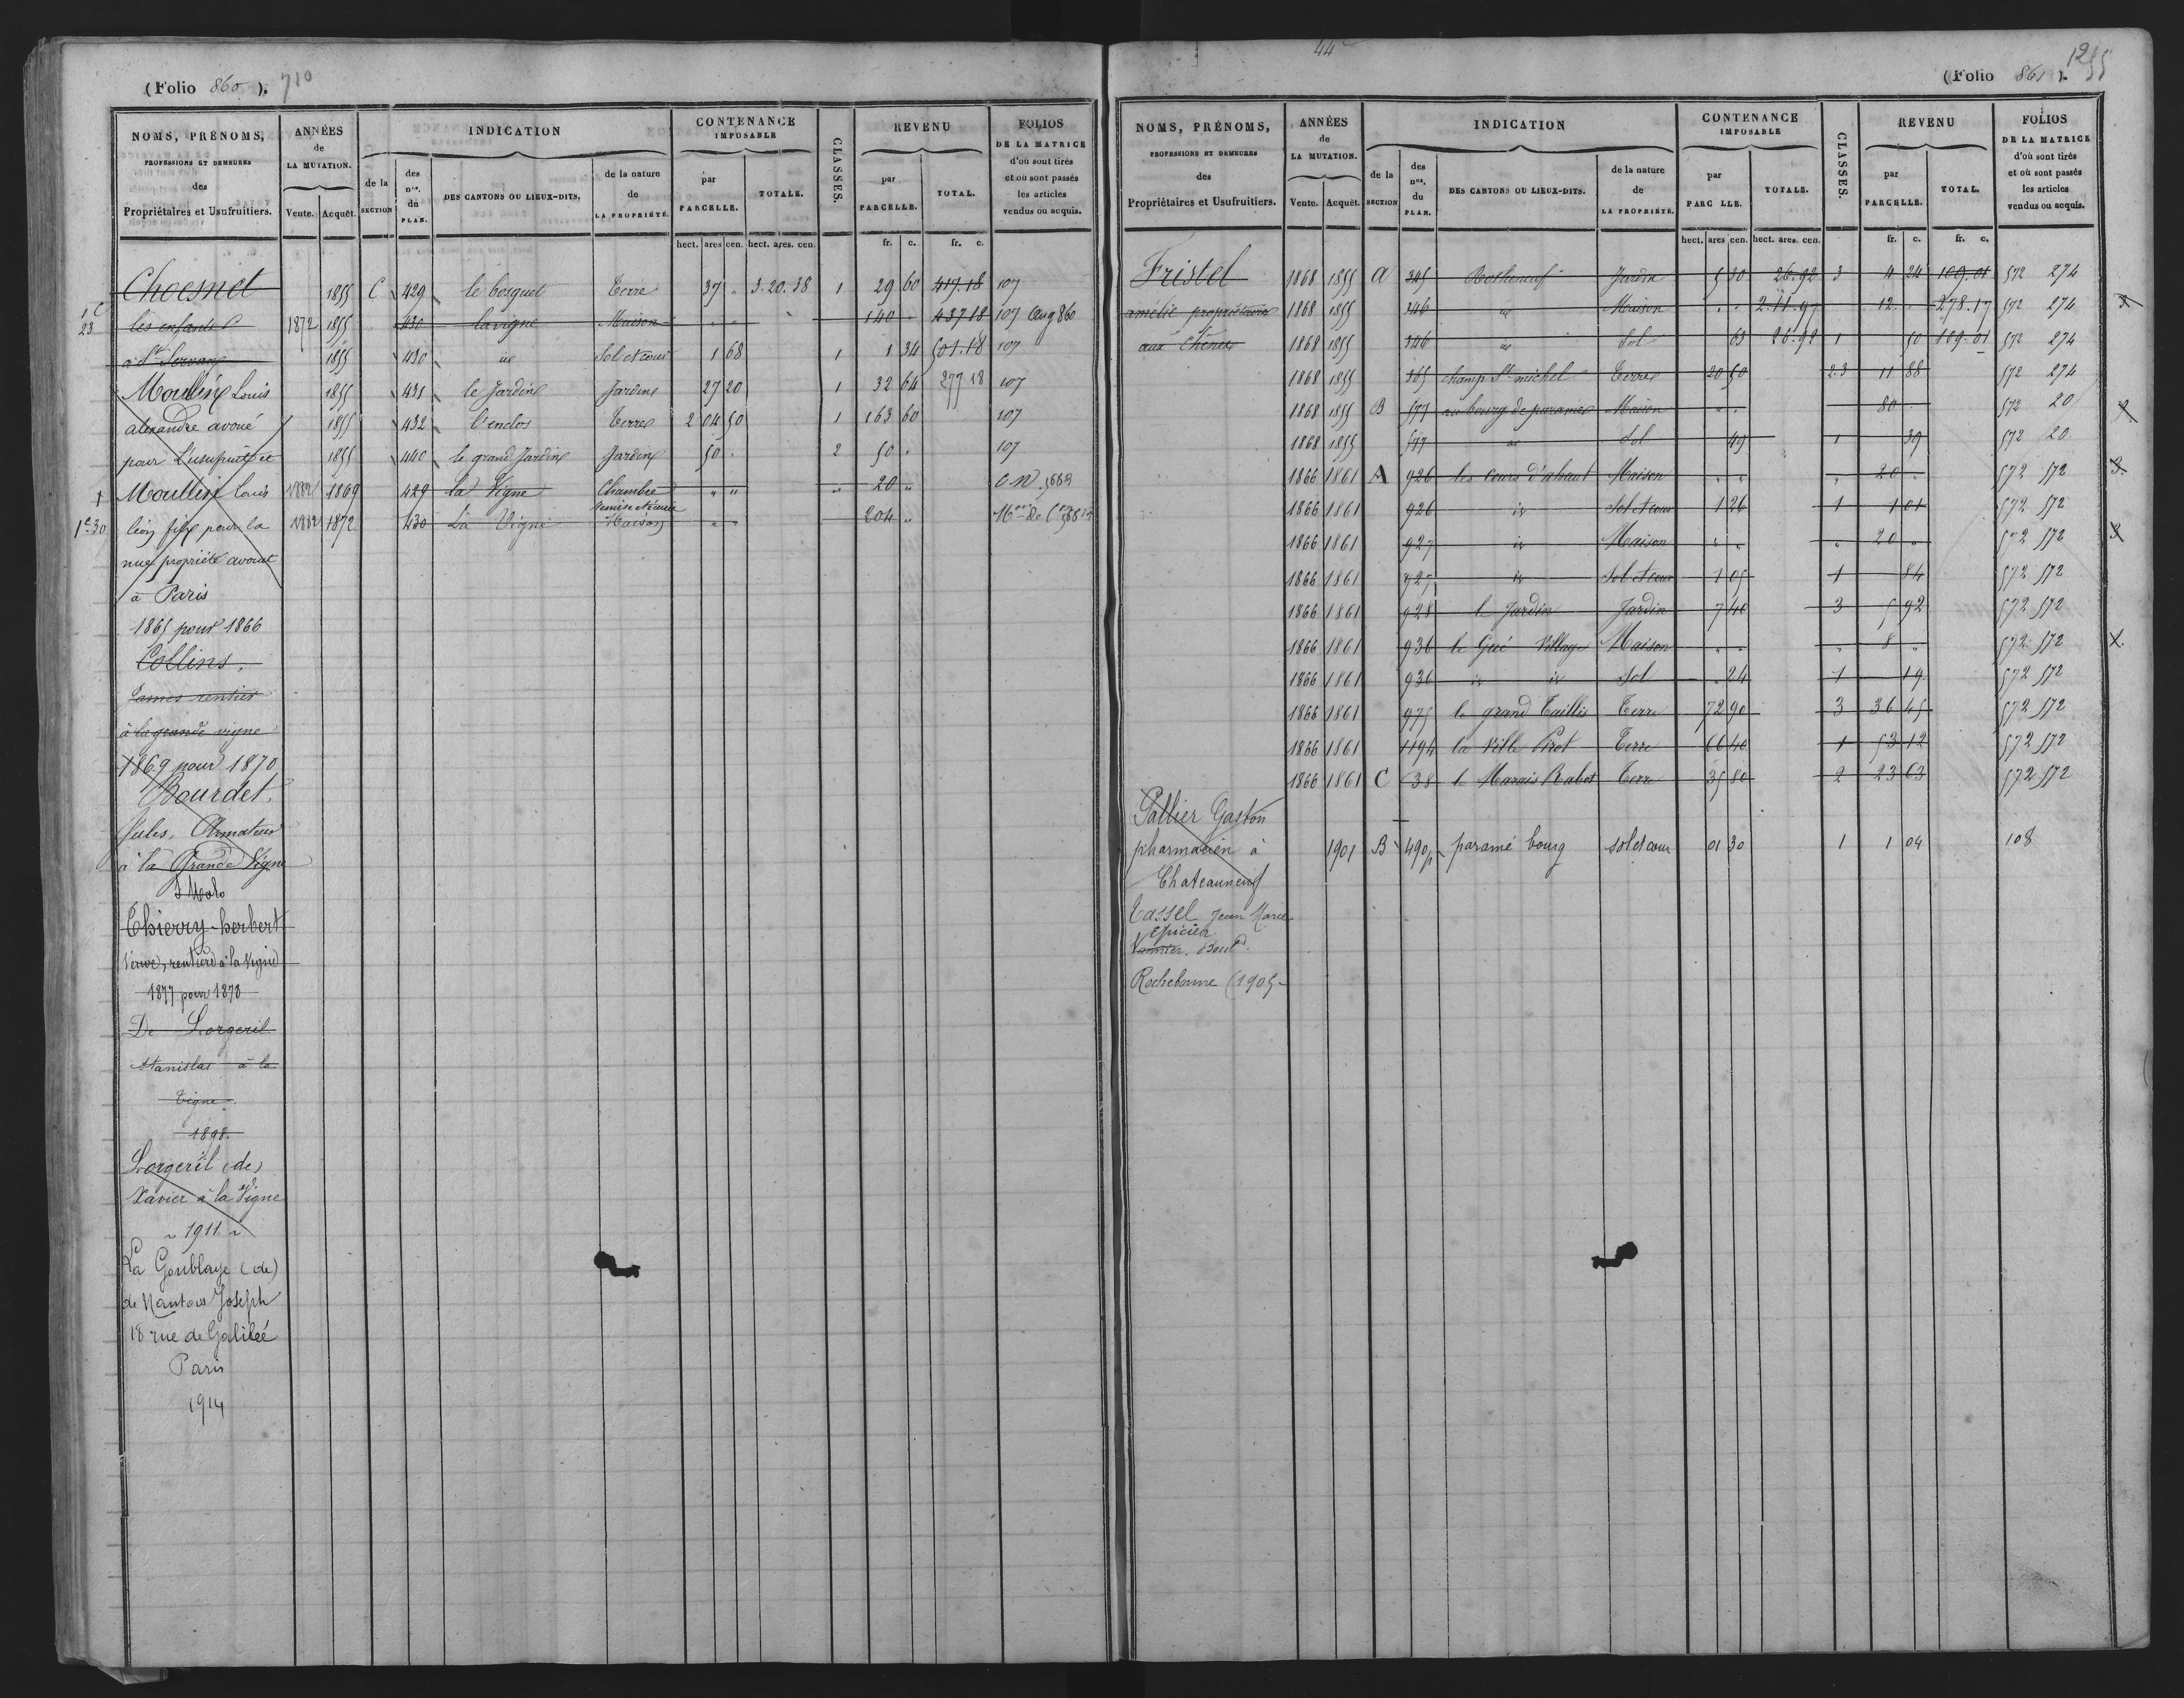 (Folio 860). 710
NOMS, PRÉNOMS, PROFESSIONS ET DEMEURES des Propriétaires et Usufruitiers.
ANNÉES de LA MUTATION. Vente. Acquêt.
INDICATION
de la SECTION
des nos. du PLAN.
DES CANTONS OU LIEUX-DITS.
de la nature de LA PROPRIÉTÉ.
CONTENANCE IMPOSABLE
par PARCELLE. TOTALE.
CLASSES.
REVENU
par PARCELLE. TOTAL.
FOLIOS DE LA MATRICE d'où sont tirés et où sont passés les articles vendus ou acquis.
hect. ares cen. hect. ares. cen. fr. c. fr. c.
Choesnet 1855 C 429 le bosquet Terre 37 " 3.20.38 1 29 60 417.18 107
les enfants 1872 1855 430 la vigne Maison " " 140 " 437 18 107 Aug 860
à St Servan 1855 430 id Sol et cour 1 68 1 1 34 501.18 107
Moullin Louis 1855 431 le Jardin Jardin 27 20 1 32 64 277 18 107
alexandre avoué 1855 432 l'enclos Terre 2 04 50 1 163 60 107
pour l'usufruit et 1855 440 le grand Jardin Jardin 50 " 2 50 " 107
Moullin louis 1882 1869 429 La Vigne Chambre " " " 20 "
Remise et écurie
1c 30 léon fils pour la 1882 1872 430 La Vigne Maison " " 204 "
nue propriété avocat
à Paris
1865 pour 1866
Collins,
James rentier
à la grande vigne
1869 pour 1870
Bourdet,
Jules, Armateur
à la Grande Vigne
St Malo
Thierry-herbert
Veuve, rentière à la Vigne
1877 pour 1878
De Lorgeril
Stanislas à la
Vigne
1898.
Lorgeril (de)
Xavier à la Vigne
1911
La Goublaye (de)
de Nantois Joseph
18 rue de Galilée
Paris
1914
44
(Folio 861).
1255
NOMS, PRÉNOMS, PROFESSIONS ET DEMEURES des Propriétaires et Usufruitiers.
ANNÉES de LA MUTATION. Vente. Acquêt.
INDICATION
de la SECTION
des nos. du PLAN.
DES CANTONS OU LIEUX-DITS.
de la nature de LA PROPRIÉTÉ.
CONTENANCE IMPOSABLE
par PARC LLE. TOTALE.
CLASSES.
REVENU
par PARCELLE. TOTAL.
FOLIOS DE LA MATRICE d'où sont tirés et où sont passés les articles vendus ou acquis.
hect. ares cen. hect. ares. cen. fr. c. fr. c.
Fristel 1868 1855 A 345 Rotheneuf Jardin 5 30 26.92 3 4 24 109.01 572 274
amélie propriétaire 1868 1855 346 id Maison " " 2.11.97 12 " 278.17 572 274
aux Chênes 1868 1855 346 id Sol 63 26.92 1 50 109.01 572 274
1868 1855 385 champ St michel Terre 20 50 2.3 11 88 572 274
1868 1855 B 577 au bourg de paramé Maison " " 80 572 20
1868 1855 577 id Sol 49 1 39 572 20
1866 1861 A 926 les cours d'ahaut Maison " " " 20 " 572 572
1866 1861 926 id Sol et cour 1 26 1 1 01 572 572
1866 1861 927 id Maison " " " 20 " 572 572
1866 1861 927 id Sol et cour 1 05 1 84 572 572
1866 1861 928 le Jardin Jardin 7 40 3 5 92 572 572
1866 1861 936 le Gué Village Maison " " " 8 " 572 572
1866 1861 936 id id Sol " 24 1 19 572 572
1866 1861 975 le grand Taillis Terre 72 90 3 36 45 572 572
1866 1861 1194 la Ville Pirot Terre 66 40 1 53 12 572 572
1866 1861 C 38 le Marais Rabot Terre 35 80 2 23 63 572 572
Pallier Gaston
pharmacien à 1901 B 490p paramé bourg sol et cour 01 30 1 1 04 108
Chateauneuf
Tassel Jean Marie
Epicier
Vannier. Bould
Rochebonne (1905-